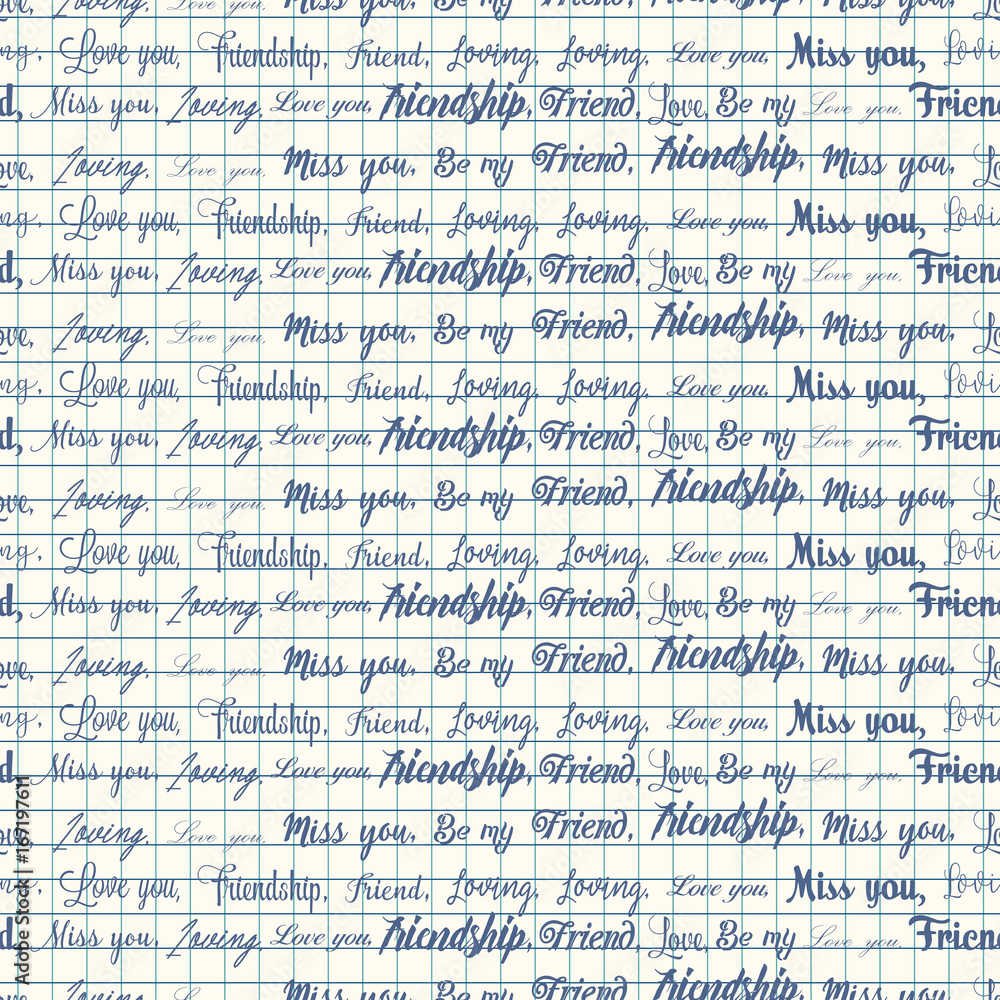 Love, Loving, Love you, Miss you, Be my Friend, Friendship, Miss you, Lo
ng, Love you, Friendship, Friend, Loving, Loving, Love you, Miss you, Lovi
d, Miss you, Loving, Love you, Friendship, Friend, Love, Be my Love you, Frien
ove, Loving, Love you, Miss you, Be my Friend, Friendship, Miss you, Lo
ng, Love you, Friendship, Friend, Loving, Loving, Love you, Miss you, Lovi
d, Miss you, Loving, Love you, Friendship, Friend, Love, Be my Love you, Frien
ove, Loving, Love you, Miss you, Be my Friend, Friendship, Miss you, Lo
ng, Love you, Friendship, Friend, Loving, Loving, Love you, Miss you, Lovi
d, Miss you, Loving, Love you, Friendship, Friend, Love, Be my Love you, Frien
ove, Loving, Love you, Miss you, Be my Friend, Friendship, Miss you, Lo
ng, Love you, Friendship, Friend, Loving, Loving, Love you, Miss you, Lovi
d, Miss you, Loving, Love you, Friendship, Friend, Love, Be my Love you, Frien
ove, Loving, Love you, Miss you, Be my Friend, Friendship, Miss you, Lo
ng, Love you, Friendship, Friend, Loving, Loving, Love you, Miss you, Lovi
d, Miss you, Loving, Love you, Friendship, Friend, Love, Be my Love you, Frien
ove, Loving, Love you, Miss you, Be my Friend, Friendship, Miss you, Lo
ng, Love you, Friendship, Friend, Loving, Loving, Love you, Miss you, Lovi
d, Miss you, Loving, Love you, Friendship, Friend, Love, Be my Love you, Frien
Loving, Love you, Miss you, Be my Friend, Friendship, Miss you, Lo
Adobe Stock | #167197611